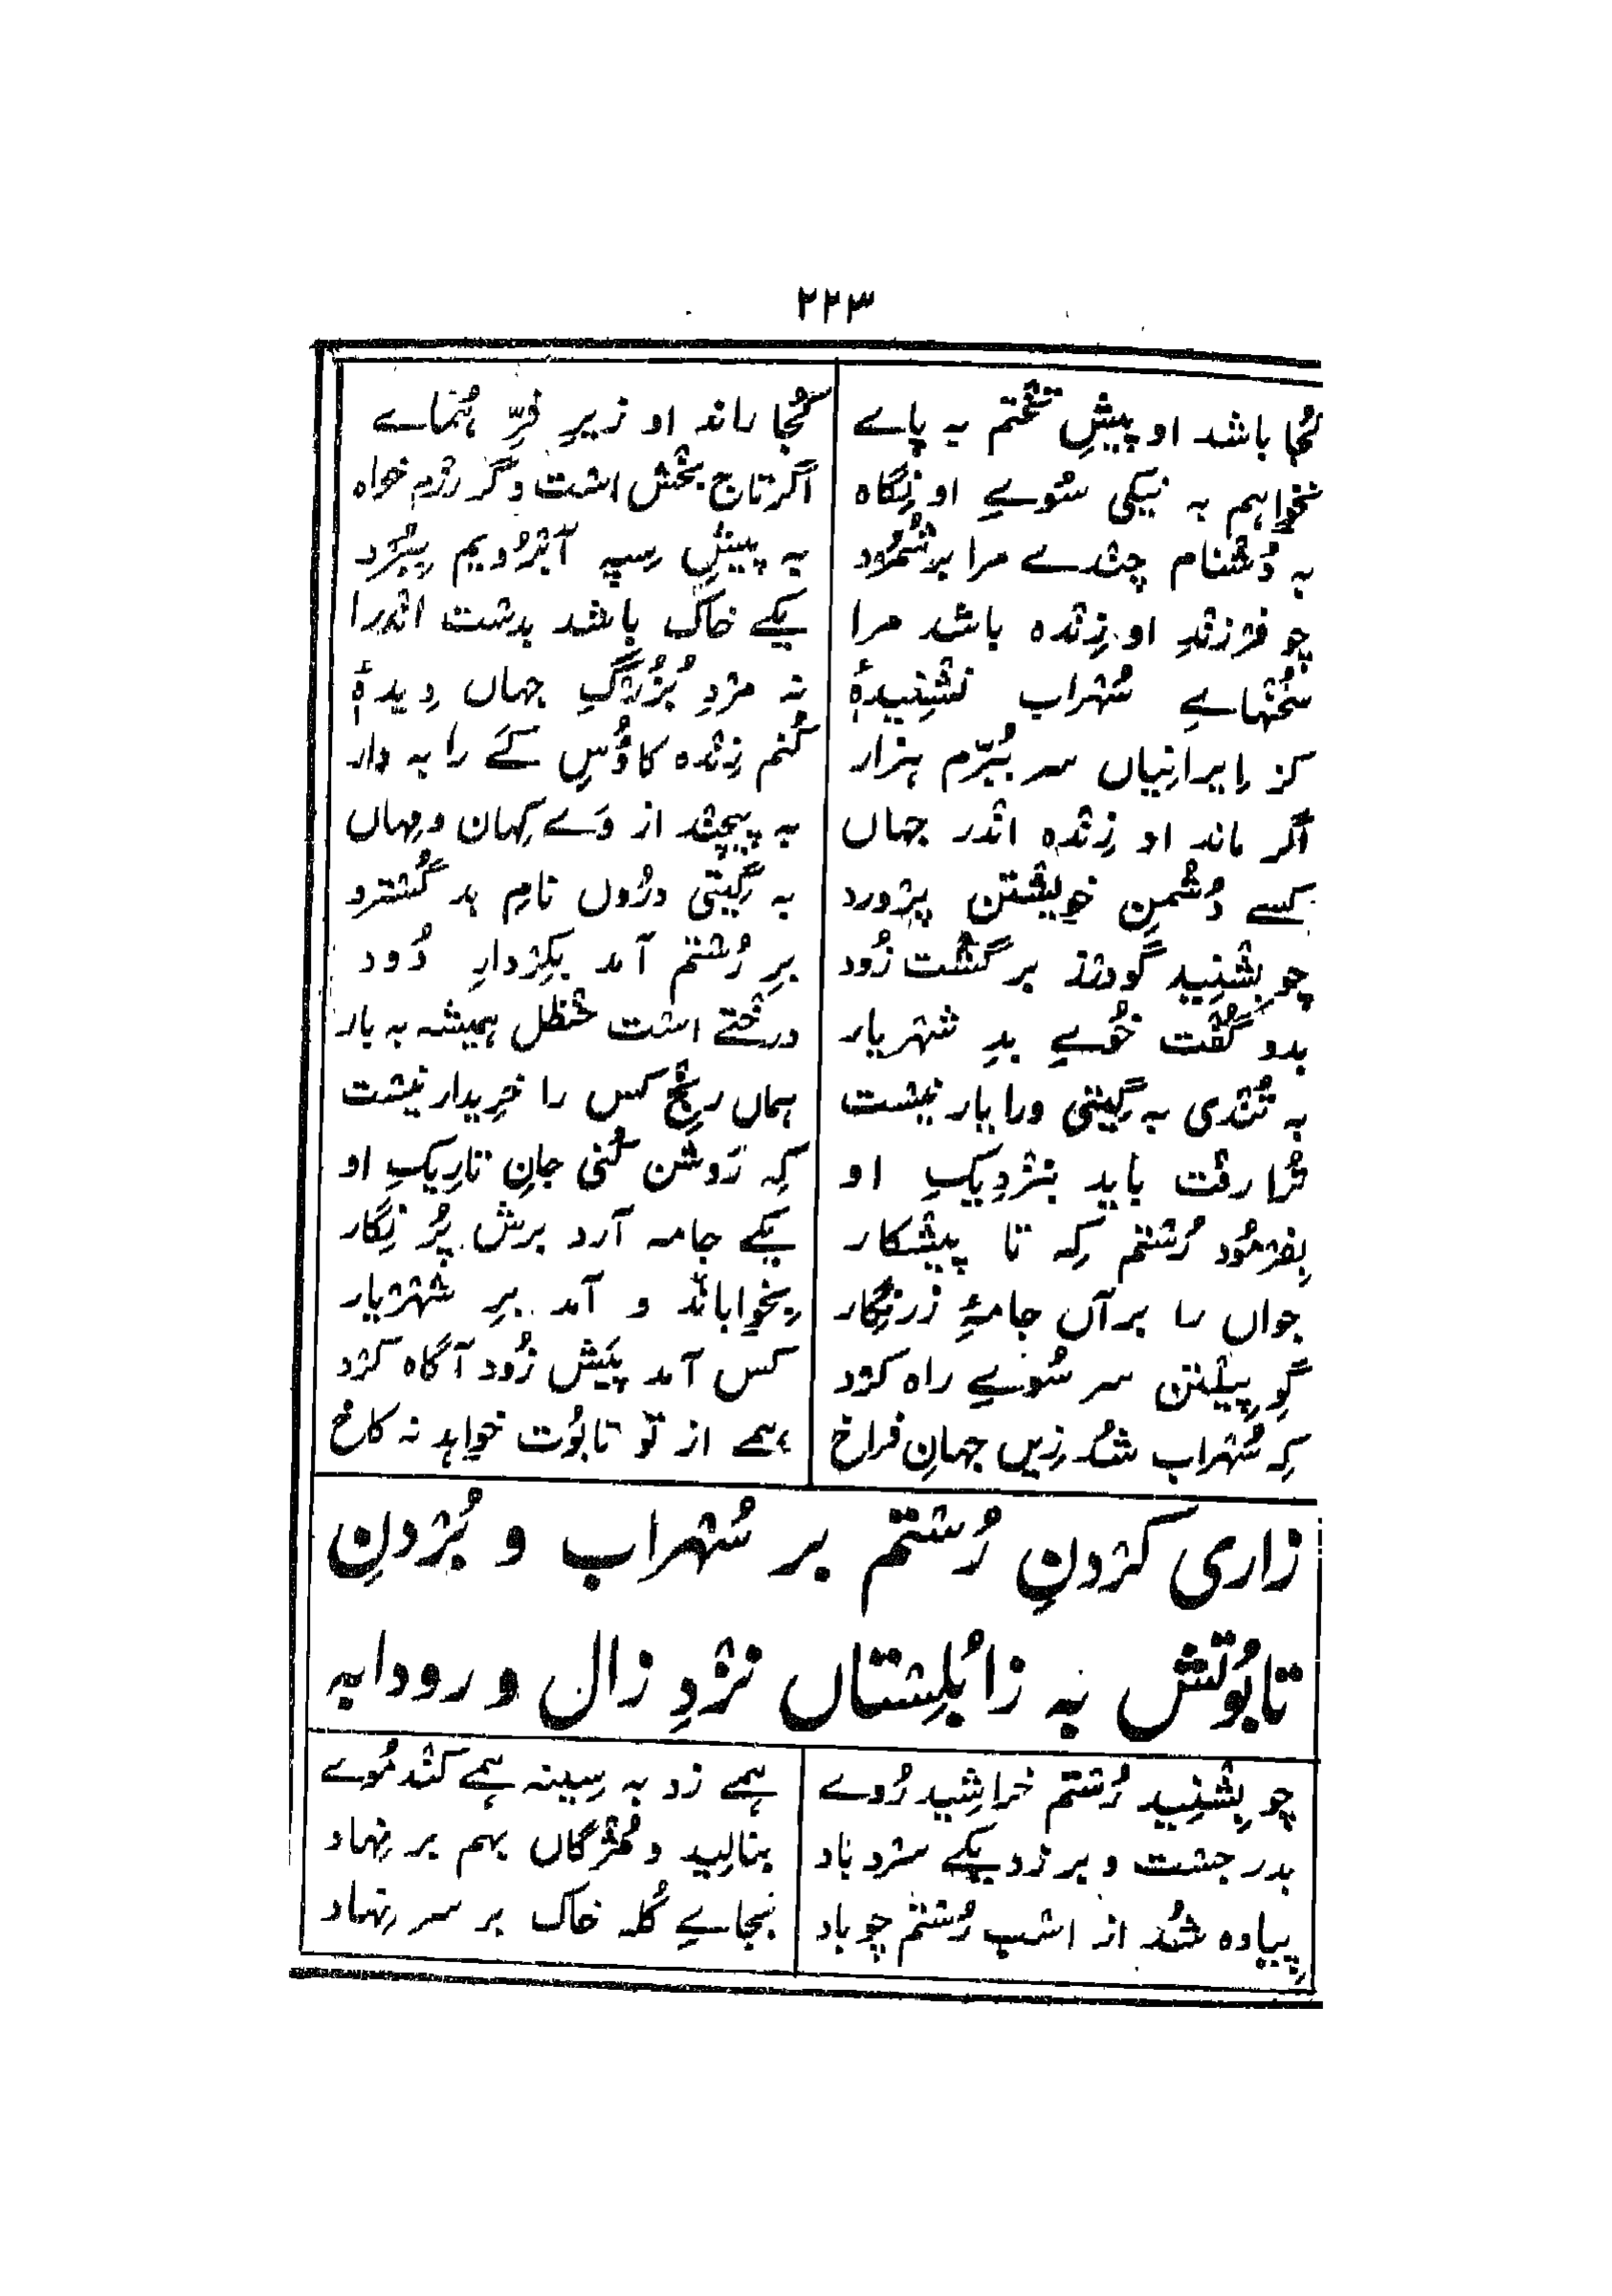 ۲۲۳
کُجا باشد او پیشِ تختم به پاے کُجا راند او زیرِ فرِّ ہُماے
نخواہم به نیکی سُوےِ او نِگاه اگر تاج بخش است وگر رزم خواه
به دُشنام چندے مرا برشُمرُد به پیشِ سِپه آبرُویم بِبُرد
چو فرزندِ او زِنده باشد مرا یکے خاک باشد بدست اندرا
سُخنہاےِ سُہراب نشنِیدهٔ نه مردِ بُزُرگِ جہاں دِیدهٔ
کز اِیرانِیاں سر بُبرّم ہزار کُنم زِنده کاؤُسِ کَے را به دار
اگر ماند او زِنده اندر جہاں به پیچند از وَے کِہان و مِہاں
کسے دُشمنِ خویشتن پرورد به گیتی درُوں نامِ بد گُسترد
چو بشنِید گودرز برگشت زُود برِ رُستم آمد بکِردارِ دُود
بدو گُفت خُوےِ بدِ شہریار درختے است حنظل ہمیشه به بار
به تُندی به گیتی ورا یار نیست ہماں رنج کس را خریدار نیست
تُرا رفت باید بنزدِیکِ او که رَوشن کُنی جانِ تارِیکِ او
بِفرمُود رُستم که تا پیشکار یکے جامه آرد برش پُر نِگار
جواں را بر آں جامهٔ زرنِگار بِخواباند و آمد برِ شہریار
گوِ پیلتن سر سُوےِ راه کرد کس آمد پسَش زُود آگاه کرد
که سُہراب شُد زِیں جہانِ فراخ ہمے از تو تابُوت خواہد نه کاخ
زاری کردنِ رُستم بر سُہراب و بُردنِ
تابُوتش به زابُلِستاں نزدِ زال و رودابه
چو بِشنِید رُستم خراشِید رُوے ہمے زد به سِینه ہمے کند مُوے
بدر جست و بر زد یکے سرد باد بنالِید و مُژگاں بہم بر نِہاد
پِیاده شُد از اسپ رُستم چو باد بجاےِ کُله خاک بر سر نِہاد